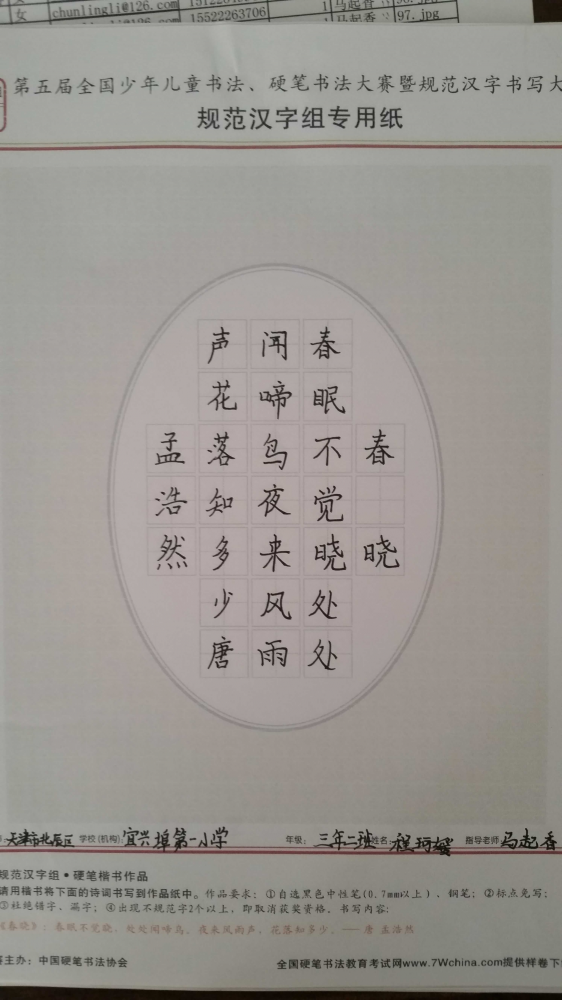 女 chunlingli@126.com 15122
15522623706 1 马起香 97.jpg
第五届全国少年儿童书法、硬笔书法大赛暨规范汉字书写大
规范汉字组专用纸
春晓
春眠不觉晓处处
闻啼鸟夜来风雨
声花落知多少唐
孟浩然
天津市北辰区 学校(机构): 宜兴埠第一小学 年级: 三年二班 姓名: 程珂 指导老师 马起香
规范汉字组·硬笔楷书作品
请用楷书将下面的诗词书写到作品纸中。作品要求:①自选黑色中性笔(0.7mm以上)、钢笔;②标点免写;
③杜绝错字、漏字;④出现不规范字2个以上,即取消获奖资格。书写内容:
《春晓》:春眠不觉晓,处处闻啼鸟,夜来风雨声,花落知多少。——唐 孟浩然
主办:中国硬笔书法协会 全国硬笔书法教育考试网www.7Wchina.com提供样卷下